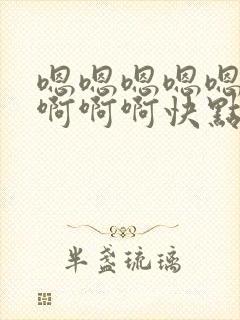 嗯嗯嗯嗯嗯
啊啊啊快點
半盞琉璃